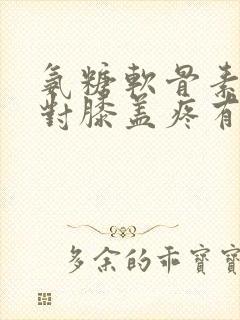 氨糖軟骨素
對膝盖疼有
多余的乖寶寶